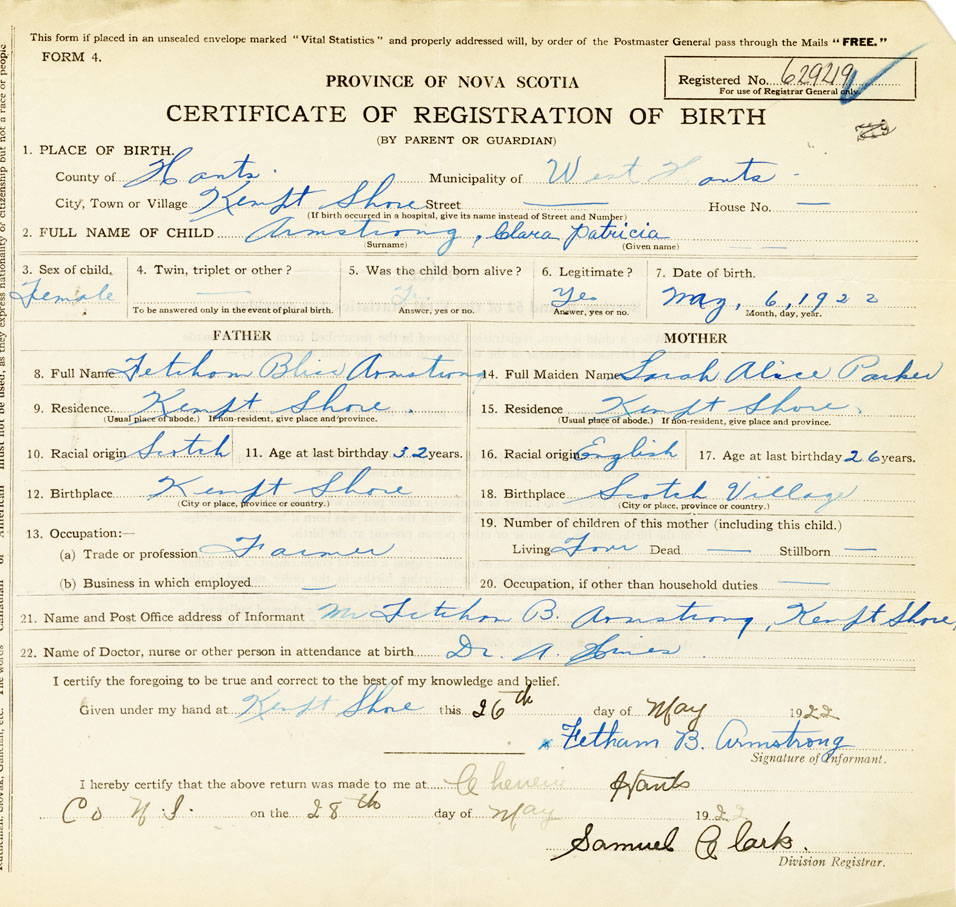 This form if placed in an unsealed envelope marked "Vital Statistics" and properly addressed will, by order of the Postmaster General pass through the Mails "FREE."
FORM 4.
PROVINCE OF NOVA SCOTIA
Registered No. 629219
For use of Registrar General only.
CERTIFICATE OF REGISTRATION OF BIRTH
(BY PARENT OR GUARDIAN)
1. PLACE OF BIRTH.
County of Hants. Municipality of West Hants -
City, Town or Village Kempt Shore Street — House No. —
(If birth occurred in a hospital, give its name instead of Street and Number)
2. FULL NAME OF CHILD Armstrong, Clara Patricia
(Surname) (Given name)
3. Sex of child. 4. Twin, triplet or other? 5. Was the child born alive? 6. Legitimate? 7. Date of birth.
Female — Yes Yes May, 6, 1922
To be answered only in the event of plural birth. Answer, yes or no. Answer, yes or no. Month, day, year.
FATHER MOTHER
8. Full Name Bliss Armstrong 14. Full Maiden Name Sarah Alice Parker
9. Residence Kempt Shore. 15. Residence Kempt Shore.
(Usual place of abode.) If non-resident, give place and province. (Usual place of abode.) If non-resident, give place and province.
10. Racial origin Scotch 11. Age at last birthday 32 years. 16. Racial origin English 17. Age at last birthday 26 years.
12. Birthplace Kempt Shore 18. Birthplace Scotch Village
(City or place, province or country.) (City or place, province or country.)
13. Occupation:— 19. Number of children of this mother (including this child.)
(a) Trade or profession Farmer Living Four Dead — Stillborn —
(b) Business in which employed — 20. Occupation, if other than household duties —
21. Name and Post Office address of Informant Mr B. Armstrong, Kempt Shore,
22. Name of Doctor, nurse or other person in attendance at birth Dr. A.
I certify the foregoing to be true and correct to the best of my knowledge and belief.
Given under my hand at Kempt Shore this 26th day of May 1922
x Fetham B. Armstrong
Signature of Informant.
I hereby certify that the above return was made to me at Cheverie Hants
Co N.S. on the 28th day of May 1922
Samuel Clark.
Division Registrar.